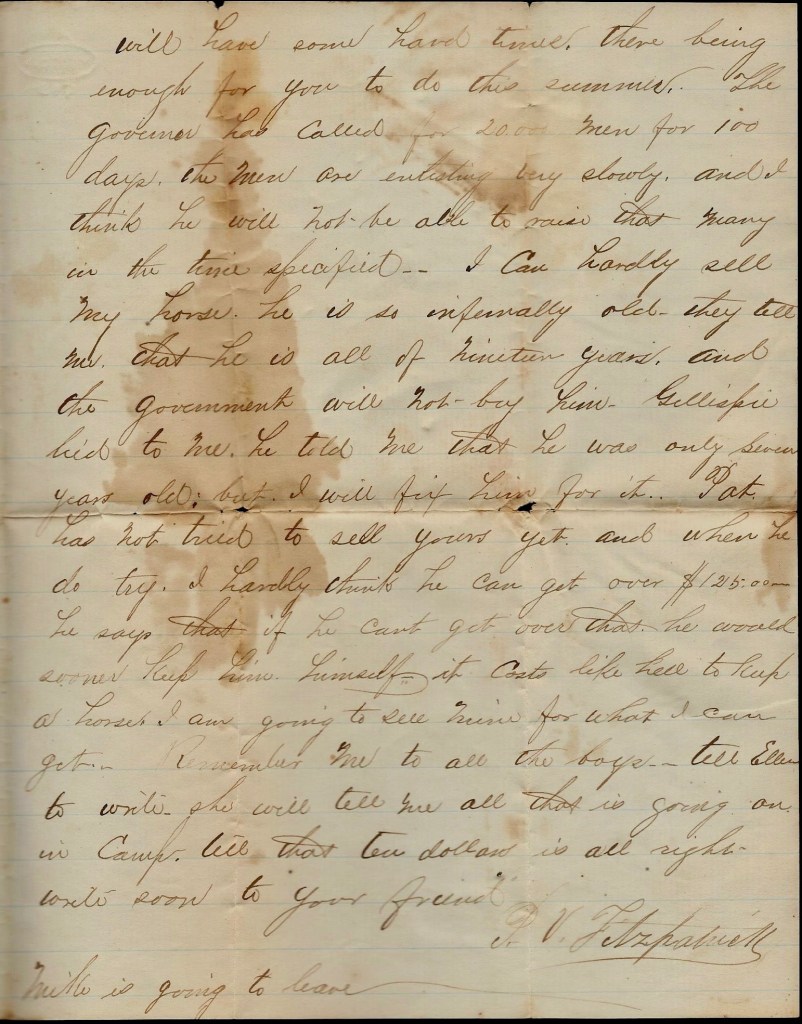 will have some hard times. there being
enough for you to do this summer. The
Governor has called for 20.000 men for 100
days. the men are enlisting very slowly. and I
think he will not be able to raise that many
in the time specified -- I can hardly sell
my horse. he is so infernally old - they tell
me. that he is all of nineteen years. and
the government will not buy him - Gillispie
lied to me. he told me that he was only seven
years old; but I will fix him for it.. Pat.
has not tried to sell yours yet. and when he
do try. I hardly think he can get over $125.00
he says that if he cant get over that he would
sooner keep him himself - it costs like hell to keep
a horse. I am going to sell mine for what I can
get - Remember me to all the boys -- tell Ellen
to write - she will tell me all that is going on
in Camp. tell that ten dollars is all right -
write soon to your friend
P. V. Fitzpatrick
Mike is going to leave